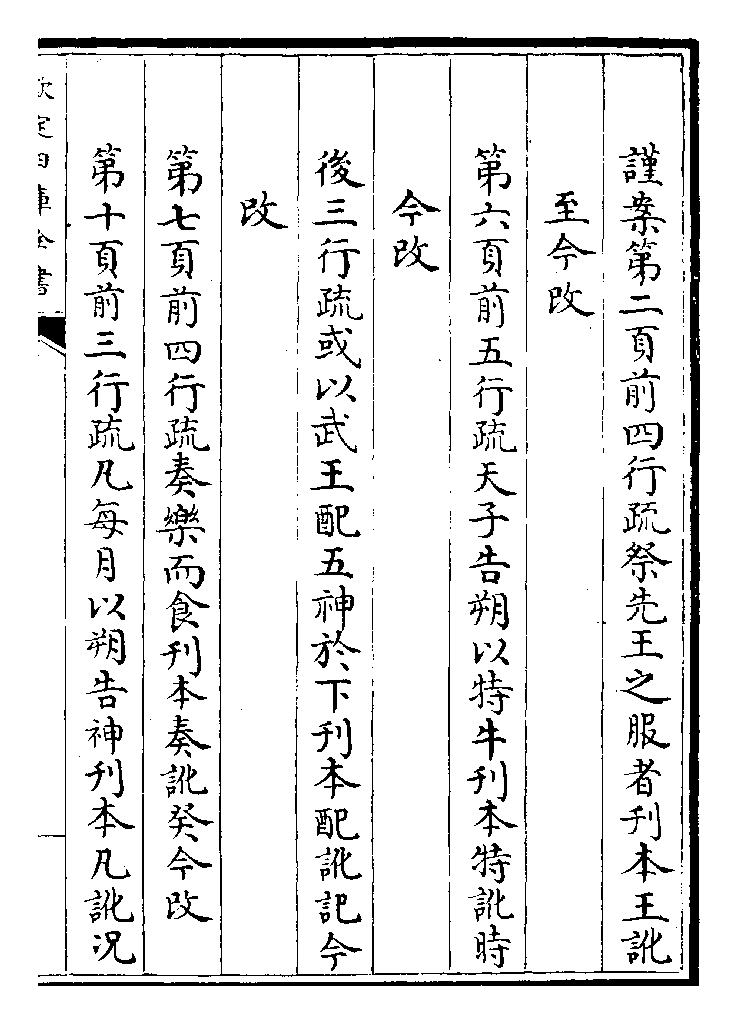 謹案第二頁前四行疏祭先王之服者刋本王訛
至今改
第六頁前五行疏天子告朔以特牛刋本特訛時
今改
後三行疏或以武王配五神於下刋本配訛記今
改
第七頁前四行疏奏樂而食刋本奏訛癸今改
第十頁前三行疏凡每月以朔告神刋本凡訛况
欽定四庫全書